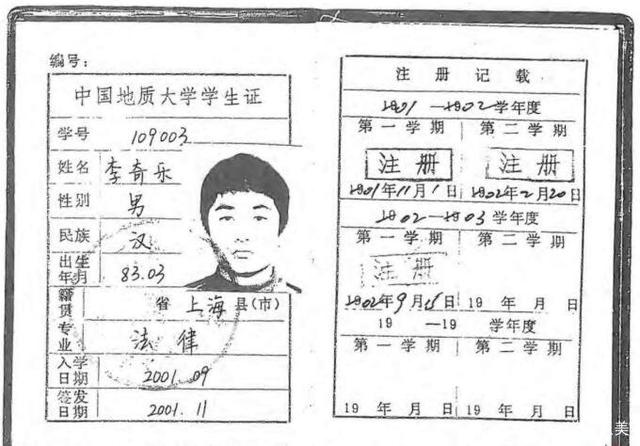 编号：
中国地质大学学生证
学号 109003
姓名 李奇乐
性别 男
民族 汉
出生年月 83.03
籍贯 省 上海 县(市)
专业 法律
入学日期 2001.09
签发日期 2001.11
注册记载
2001—2002学年度
第一学期 第二学期
注册 注册
2001年11月1日 2002年2月20日
2002—2003学年度
第一学期 第二学期
注册
2002年9月15日 19 年 月 日
19 —19 学年度
第一学期 第二学期
19 年 月 日 19 年 月 日
美